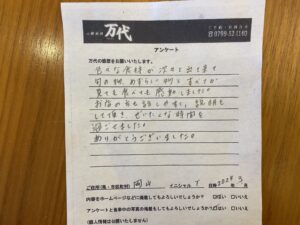 万代
ご予約・お問合せ
☎0799-52-1160
アンケート
万代の感想をお願いいたします。
色々な食材が次々と出て来て
旬の物、めずらしい物とすべてが
見ても食べても感動しました。
お店の方も話しやすく、説明も
して頂き、ぜいたくな時間を
過ごせました。
ありがとうございました。
ご住所(県・市町村) 岡山 イニシャル T 2024年3月
内容をホームページなどに掲載してもよろしいでしょうか? はい □いいえ
アンケートと食事中の写真の掲載もしてもよろしいでしょうか? はい □いいえ
(個人情報は公開いたしません)